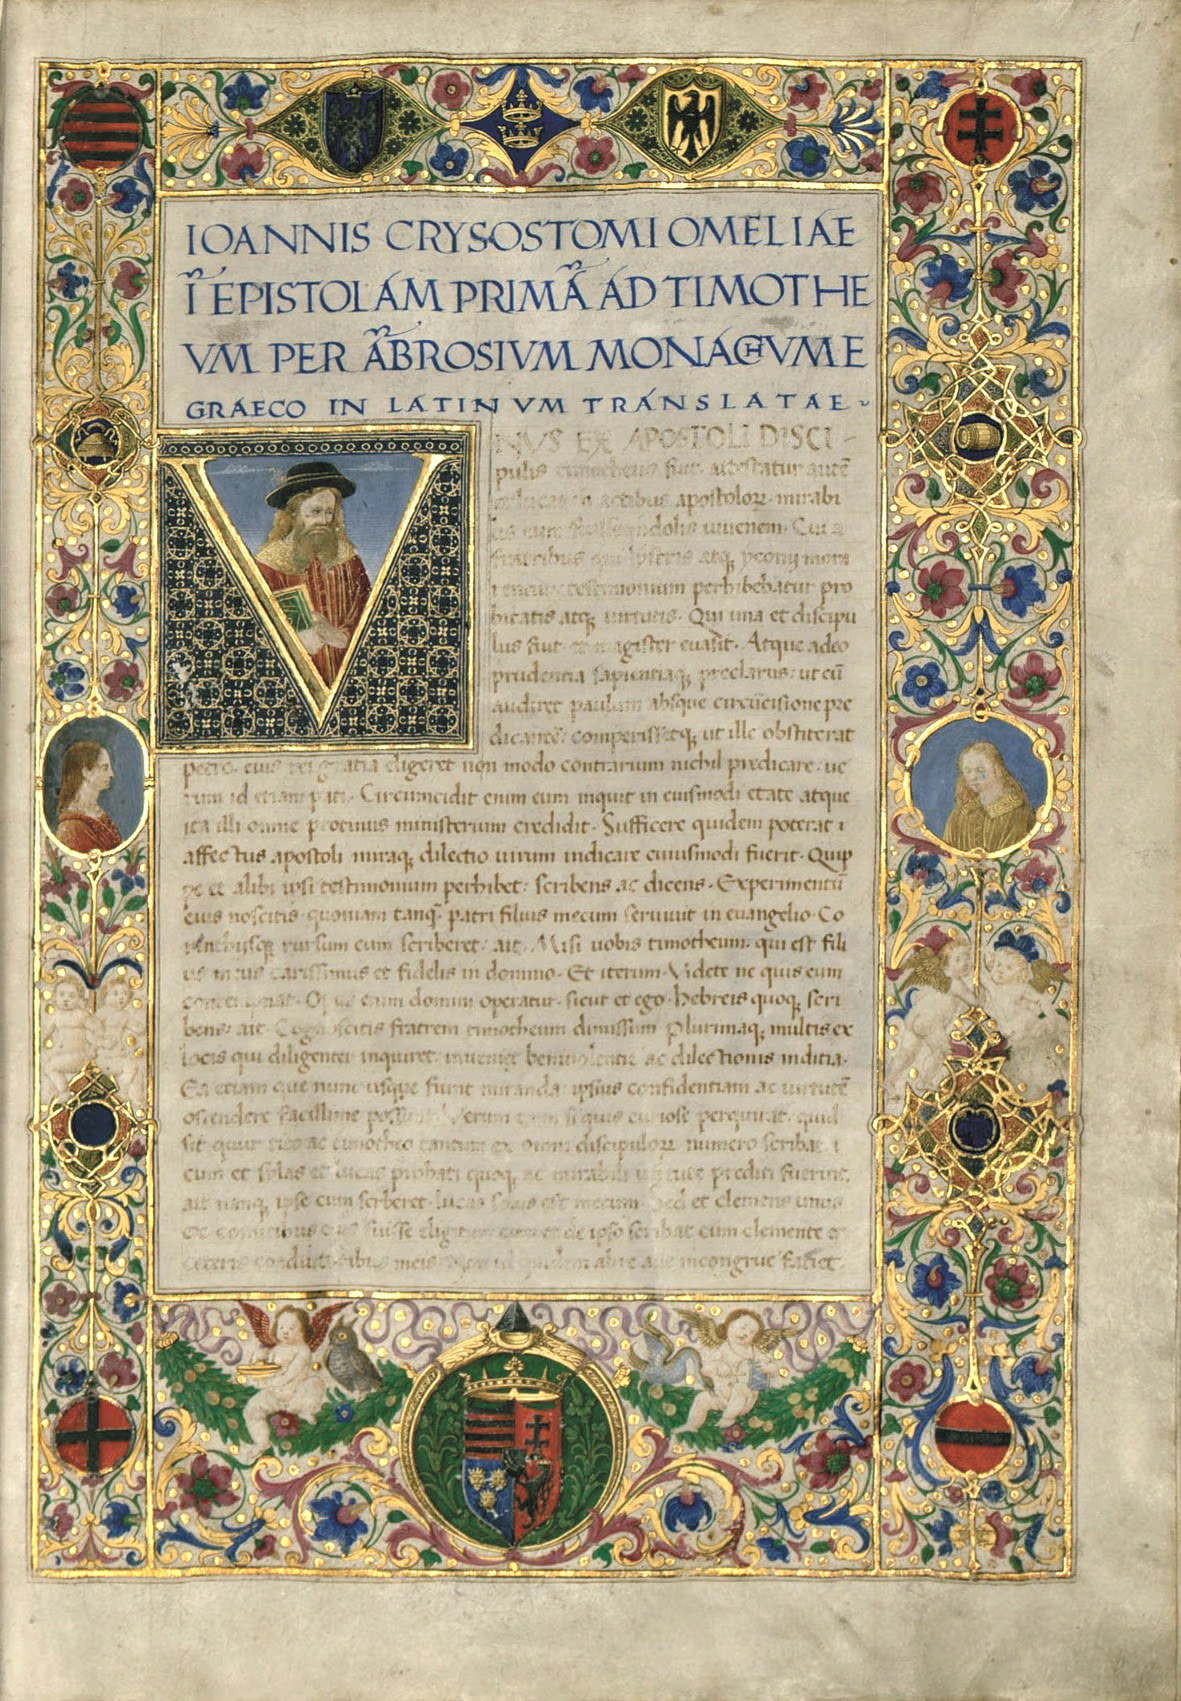 IOANNIS CRYSOSTOMI OMELIAE
I͂ EPISTOLAM PRIMA͂ AD TIMOTHE
VM PER A͂BROSIVM MONACHVM E
GRAECO IN LATINVM TRANSLATAE
VNVS EX APOSTOLI DISCI-
pulis timotheus fuit. attestatur aute͂
actibus apostolorꝝ. mirabi
iuuenem. Cui a
fratribus qui lystris atqꝫ yconij mora
testimonium perhibebatur pro
bitatis atqꝫ uirtutis. Qui una et discipu
lus fiut et magister euasit. Atque adeo
prudentia sapientiaqꝫ preclarus: ut cu͂
audiret paulum absque circu͂cisione pre
dicante͂: comperissetqꝫ ut ille obstiterat
petro. eius rei gratia eligeret non modo contrarium nichil predicare. ue
rum id etiam pati. Circumcidit enim eum inquit in eiusmodi etate atque
ita illi omne protinus ministerium credidit. Sufficere quidem poterat i
affectus apostoli miraqꝫ dilectio uirum indicare cuiusmodi fuerit. Quip
pe et alibi ipsi testimonium perhibet: scribens ac dicens. Experimentu͂
eius noscitis. quoniam tanq͂ patri filius mecum seruiuit in euangelio. Co
rinthijsqꝫ rursum cum scriberet: ait. Misi uobis timotheum: qui est fili
us meus carissimus et fidelis in domino. Et iterum. Videte ne quis eum
contemnat. Opus enim domini operatur. sicut et ego. Hebreis quoqꝫ scri
bens: ait. Cognoscitis fratrem timotheum dimissum. Plurimaqꝫ multis ex
locis qui diligenter inquiret: inueniet beniuolentie ac dilectionis inditia.
Ea etiam que nunc usque fiunt miranda: ipsius confidentiam ac uirtute͂
ostendere facillime possunt. Verum enim si quis eu iose perquirat. quid
sit quur tito ac timotheo tantum ex omni discipulorꝝ numero scribat. i
cum et sylas et lucas probati quoqꝫ ac mirabili uirtute prediti fuerint.
ait namqꝫ ipse cum scriberet. lucas solus est mecum. Sed et clemens unus
ex comitibus eius fuisse
de ipso scribat cum clemente et
ceteris meis. incongrue faciet.